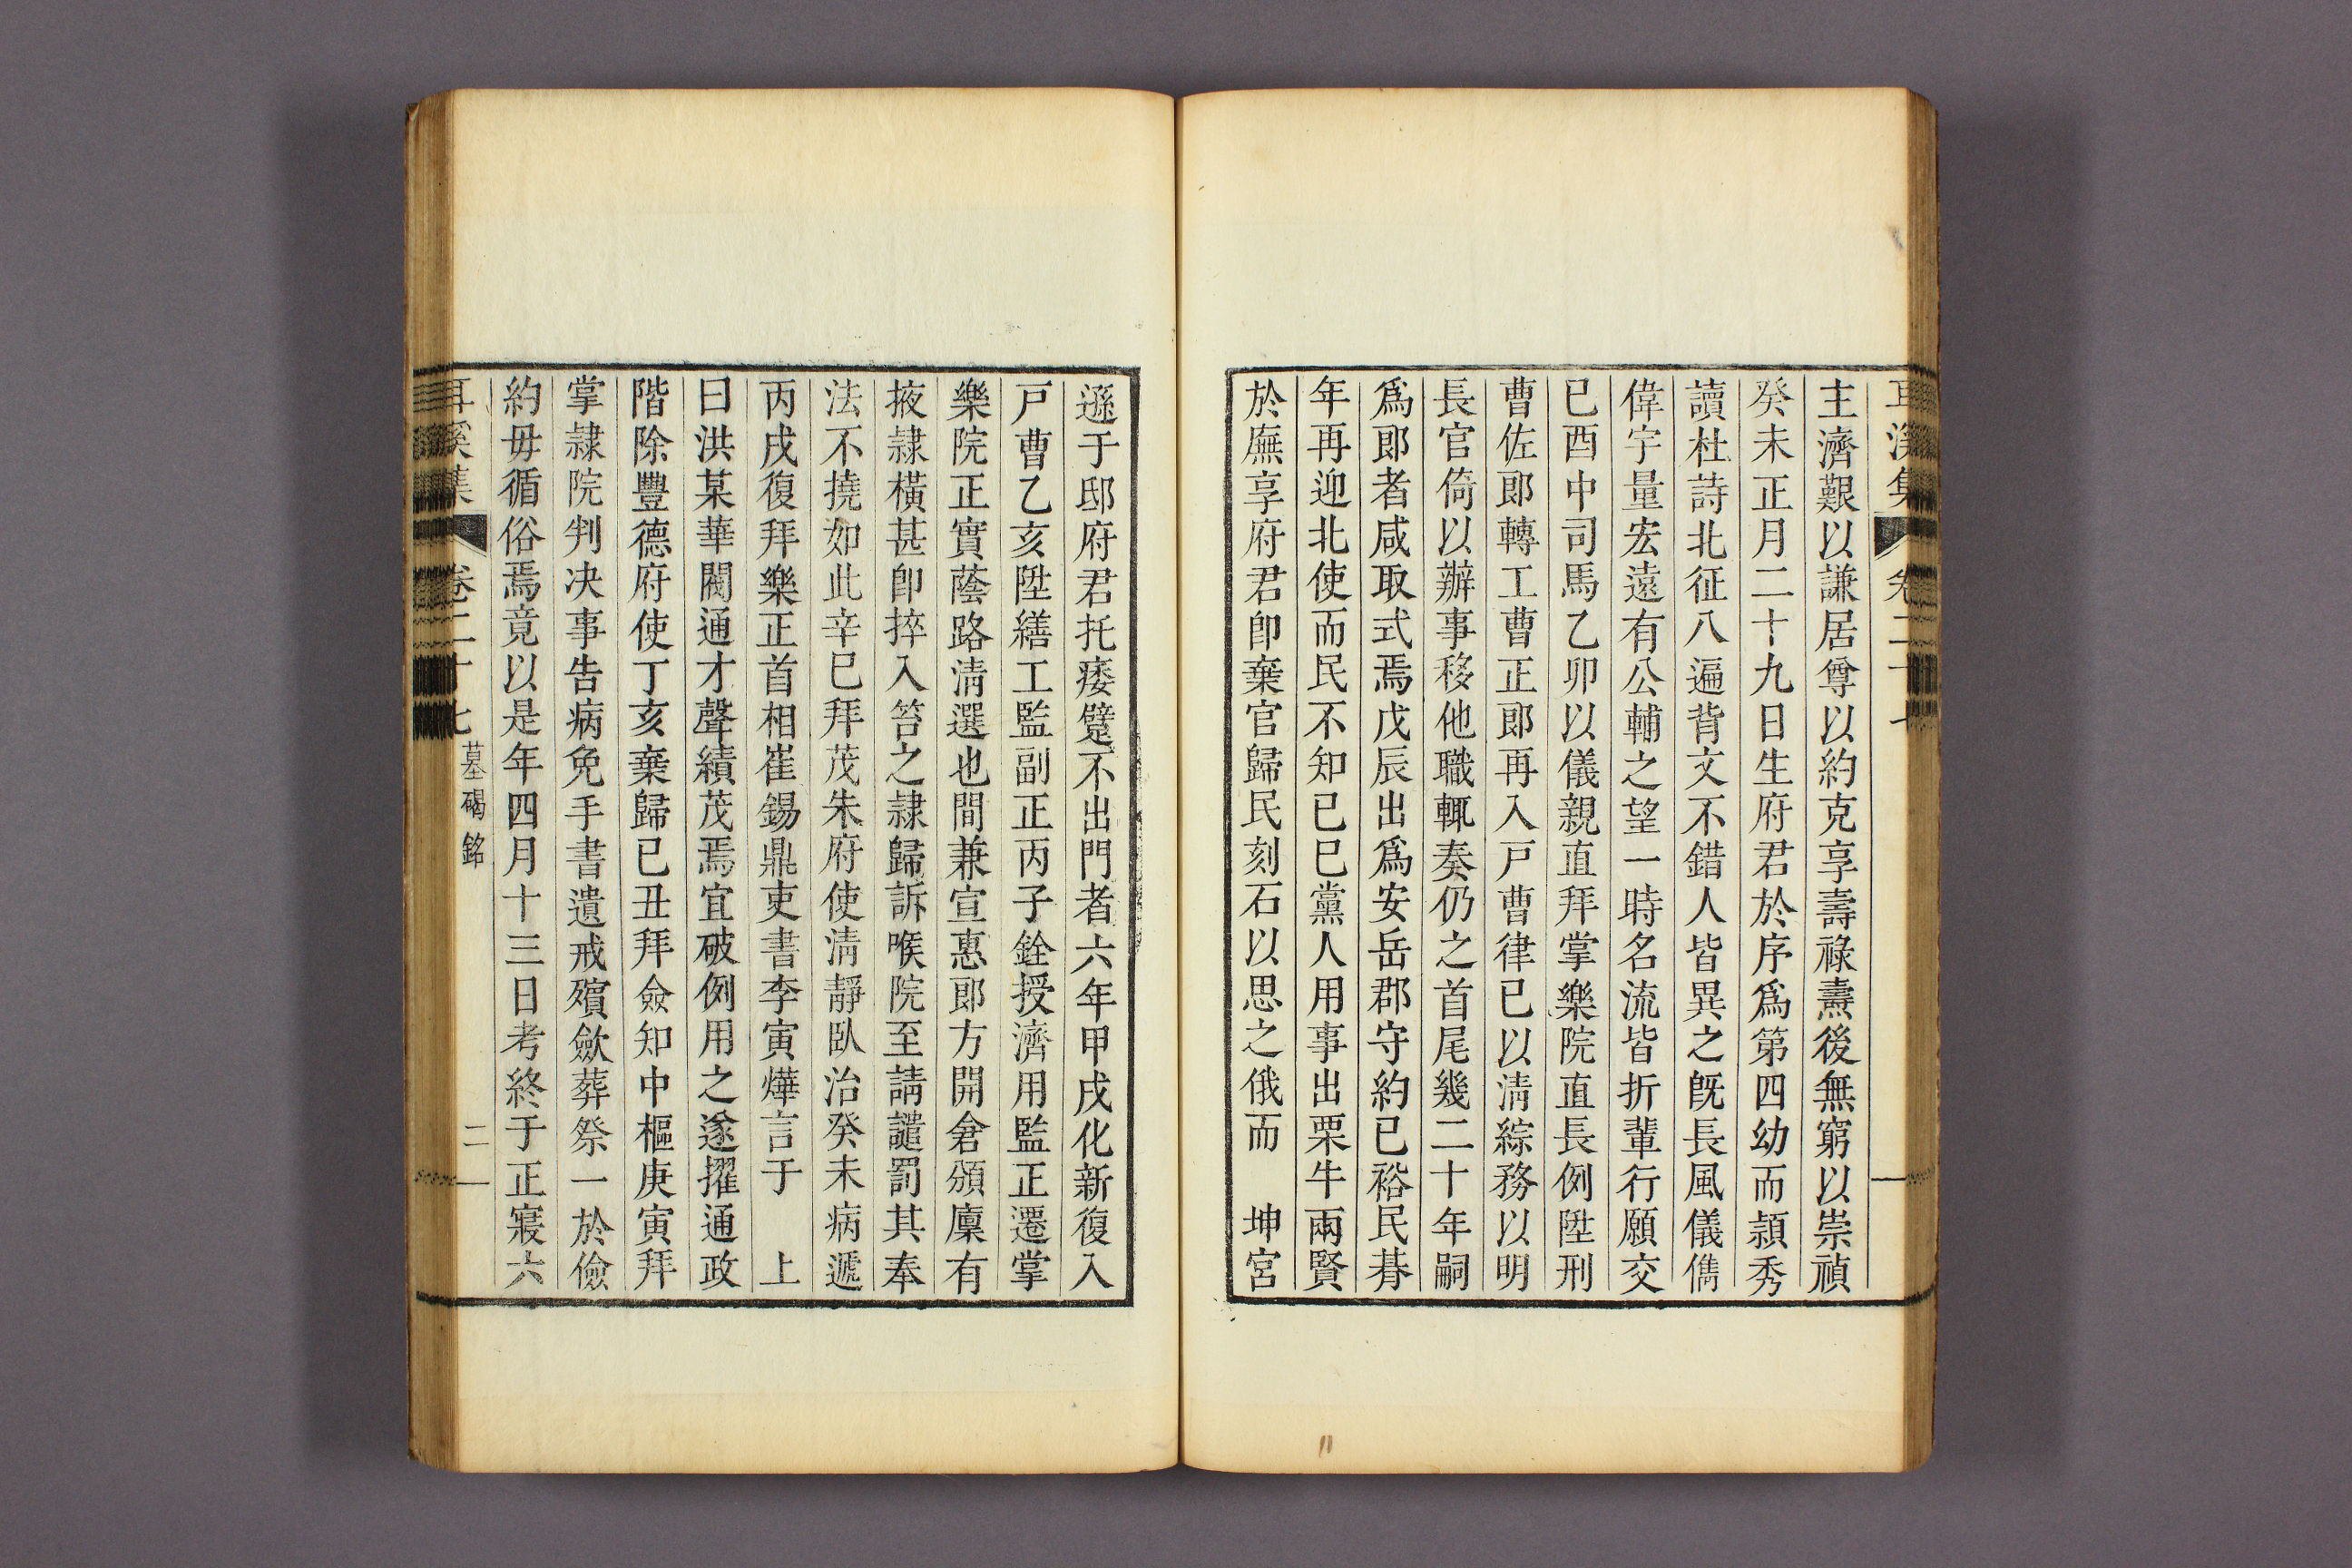 主濟艱以謙居尊以約克享壽祿燾後無窮以崇禎
癸未正月二十九日生府君於序爲第四幼而穎秀
讀杜詩北征八遍背文不錯人皆異之旣長風儀儁
偉宇量宏遠有公輔之望一時名流皆折輩行願交
已酉中司馬乙卯以儀親直拜掌樂院直長例陞刑
曹佐郞轉工曹正郞再入戸曹律已以淸綜務以明
長官倚以辦事移他職輒奏仍之首尾幾二十年嗣
爲郞者咸取式焉戊辰出爲安岳郡守約已裕民朞
年再迎北使而民不知已巳黨人用事出栗牛兩賢
於廡享府君卽棄官歸民刻石以思之俄而 坤宮
遜于邸府君托痿躄不出門者六年甲戌化新復入
戸曹乙亥陞繕工監副正丙子銓授濟用監正遷掌
樂院正實蔭路淸選也間兼宣惠郞方開倉頒廩有
掖隷橫甚卽捽入笞之隷歸訴喉院至請譴罰其奉
法不撓如此辛巳拜茂朱府使淸靜臥治癸未病遞
丙戌復拜樂正首相崔錫鼎吏書李寅燁言于 上
曰洪某華閥通才聲績茂焉宜破例用之遂擢通政
階除豐德府使丁亥棄歸已丑拜僉知中樞庚寅拜
掌隷院判决事告病免手書遺戒殯歛葬祭一於儉
約毋循俗焉竟以是年四月十三日考終于正寢六
耳溪集 卷二十七 墓碣銘 二